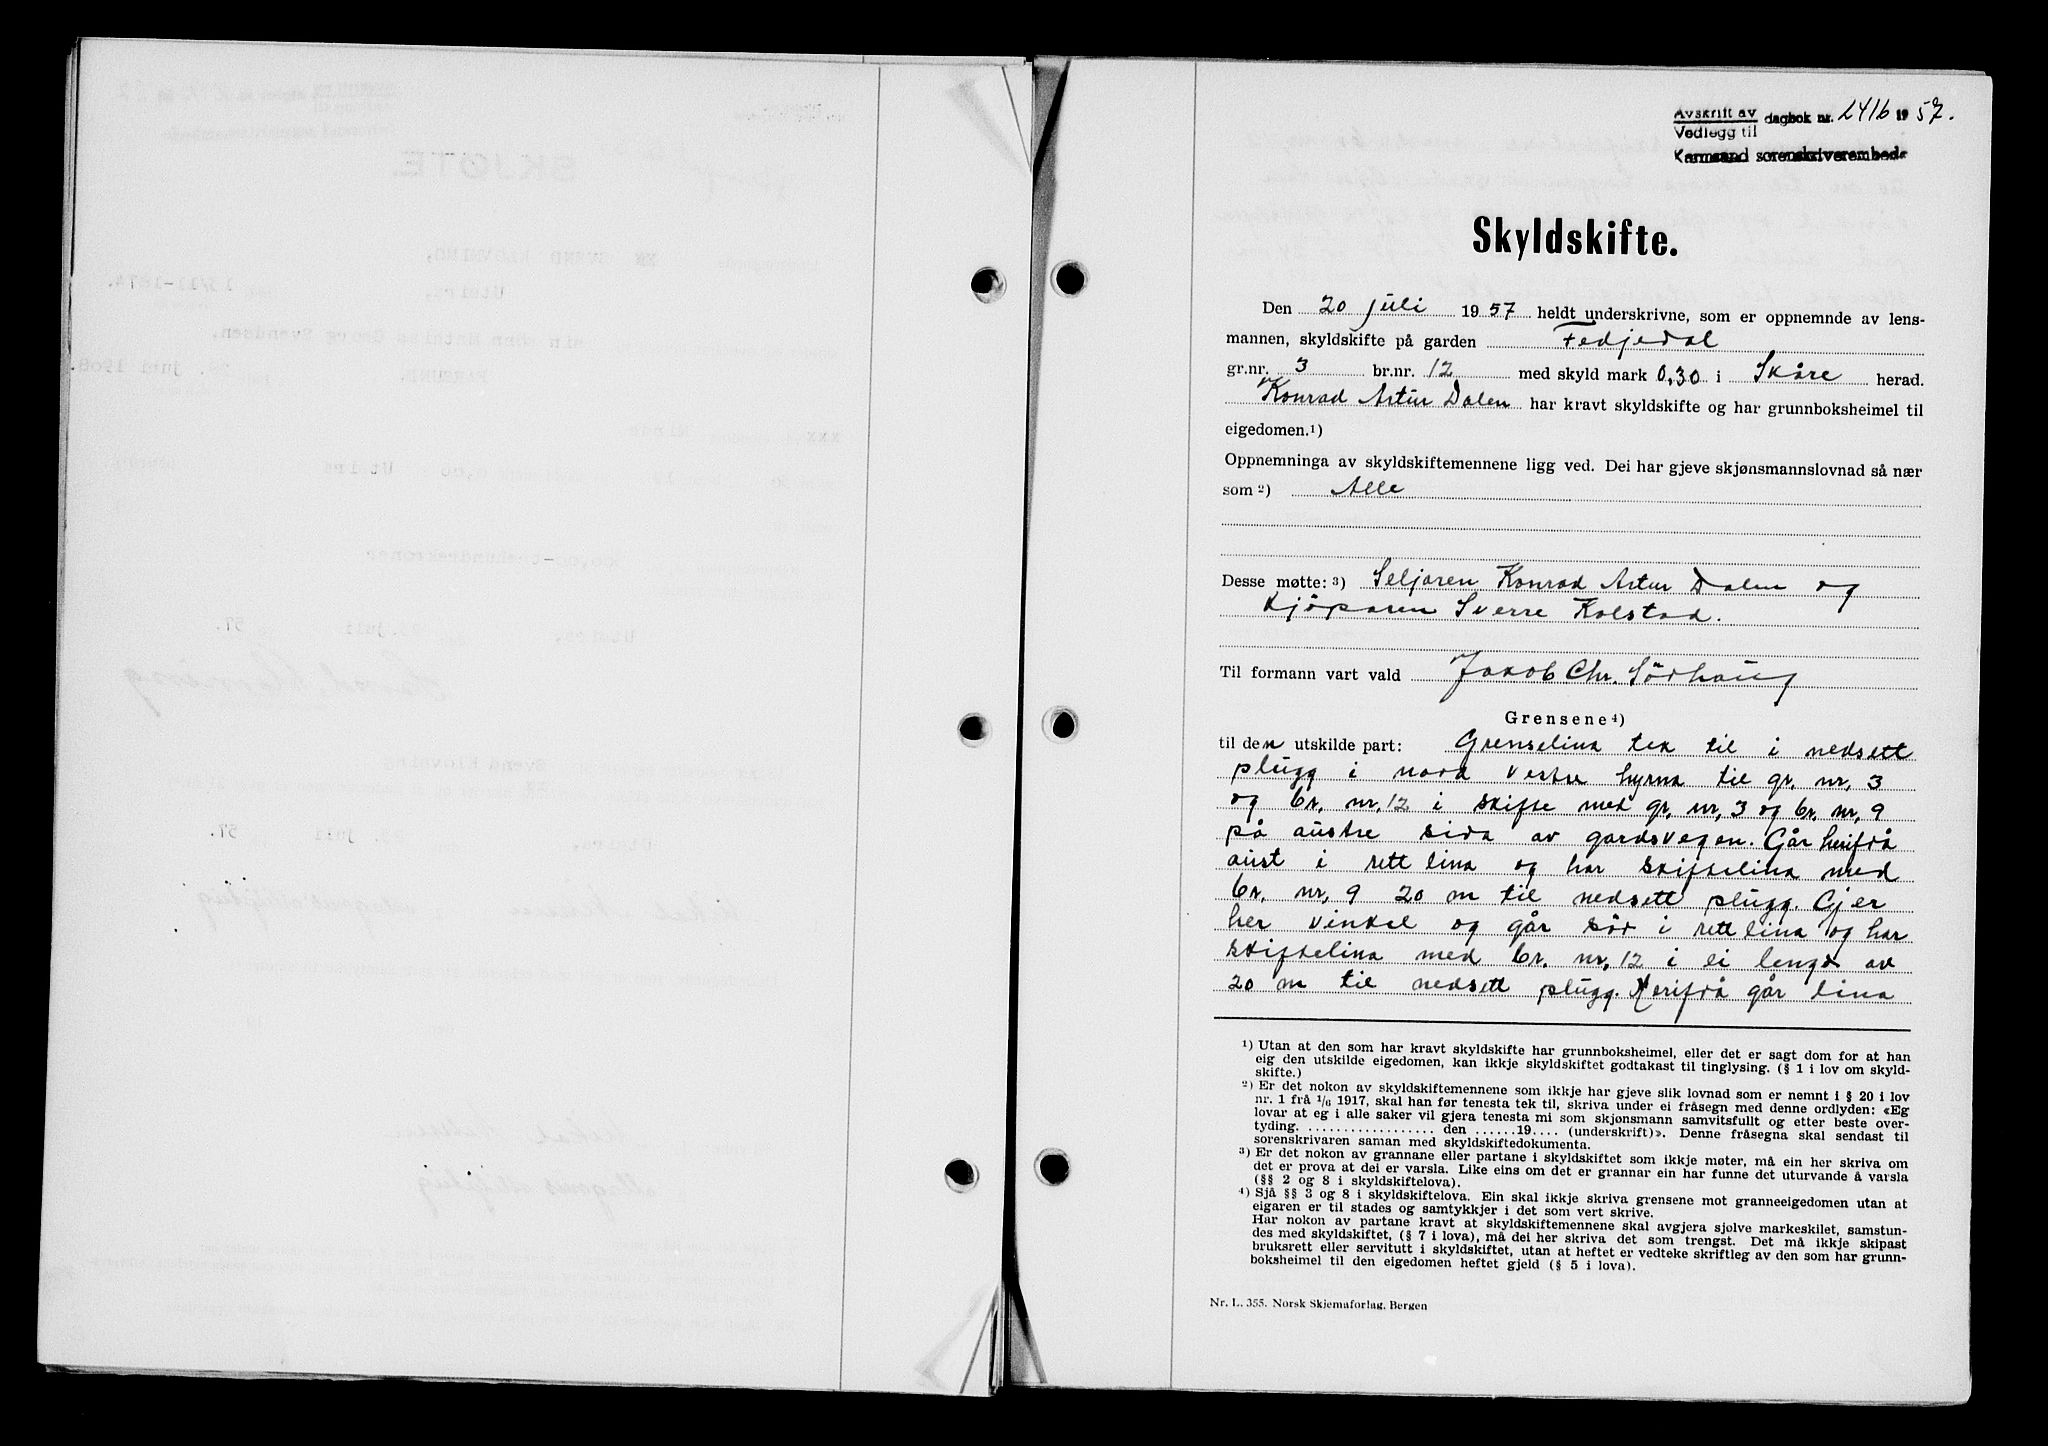 Avskrift av
Vedlegg til
dagbok nr. 2416 1957.
Karmsund sorenskriverembede
Skyldskifte.
Den 20 juli 1957 heldt underskrivne, som er oppnemnde av lens-
mannen, skyldskifte på garden Fedjedal
gr.nr. 3 br.nr. 12 med skyld mark 0,30 i Skåre herad.
Konrad Artur Dalen har kravt skyldskifte og har grunnboksheimel til
eigedomen.1)
Oppnemninga av skyldskiftemennene ligg ved. Dei har gjeve skjønsmannslovnad så nær
som 2) Alle
Desse møtte: 3) Seljaren Konrad Artur Dalen og
kjöparen Sverre Kolstad.
Til formann vart vald Jakob Chr. Sörhaug
Grensene 4)
til den utskilde part: Grenselina tek til i nedsett
plugg i nord vestre hyrna til gr. nr. 3
og br. nr. 12 i skifte med gr. nr. 3 og br. nr. 9
på austre sida av gardsvegen. Går herifrå
aust i rett lina og har skiftelina med
br. nr. 9 20 m til nedsett plugg. Gjer
her vinkel og går sör i rett lina og har
skiftelina med br. nr. 12 i ei lengd av
20 m til nedsett plugg. Herifrå går lina
1) Utan at den som har kravt skyldskifte har grunnboksheimel, eller det er sagt dom for at han
eig den utskilde eigedomen, kan ikkje skyldskiftet godtakast til tinglysing. (§ 1 i lov om skyld-
skifte.)
2) Er det nokon av skyldskiftemennene som ikkje har gjeve slik lovnad som er nemnt i § 20 i lov
nr. 1 frå 1/6 1917, skal han før tenesta tek til, skriva under ei fråsegn med denne ordlyden: «Eg
lovar at eg i alle saker vil gjera tenesta mi som skjønsmann samvitsfullt og etter beste over-
tyding. .................. den ......19.... (underskrift)». Denne fråsegna skal sendast til
sorenskrivaren saman med skyldskiftedokumenta.
3) Er det nokon av grannane eller partane i skyldskiftet som ikkje møter, må ein her skriva om
det er prova at dei er varsla. Like eins om det er grannar ein har funne det uturvande å varsla
(§§ 2 og 8 i skyldskiftelova).
4) Sjå §§ 3 og 8 i skyldskiftelova. Ein skal ikkje skriva grensene mot granneeigedomen utan at
eigaren er til stades og samtykkjer i det som vert skrive.
Har nokon av partane kravt at skyldskiftemennene skal avgjera sjølve markeskilet, samstun-
des med skyldskiftet, (§ 7 i lova), må dei her skriva det som trengst. Det må ikkje skipast
bruksrett eller servitutt i skyldskiftet, utan at heftet er vedteke skriftleg av den som har grunn-
boksheimel til den eigedomen heftet gjeld (§ 5 i lova).
Nr. L. 355. Norsk Skjemaforlag, Bergen